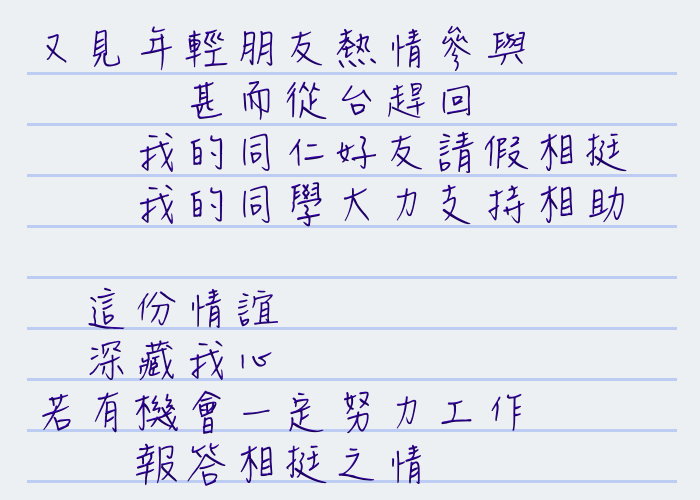 又見年輕朋友熱情參與
甚而從台趕回
我的同仁好友請假相挺
我的同學大力支持相助
這份情誼
深藏我心
若有機會一定努力工作
報答相挺之情